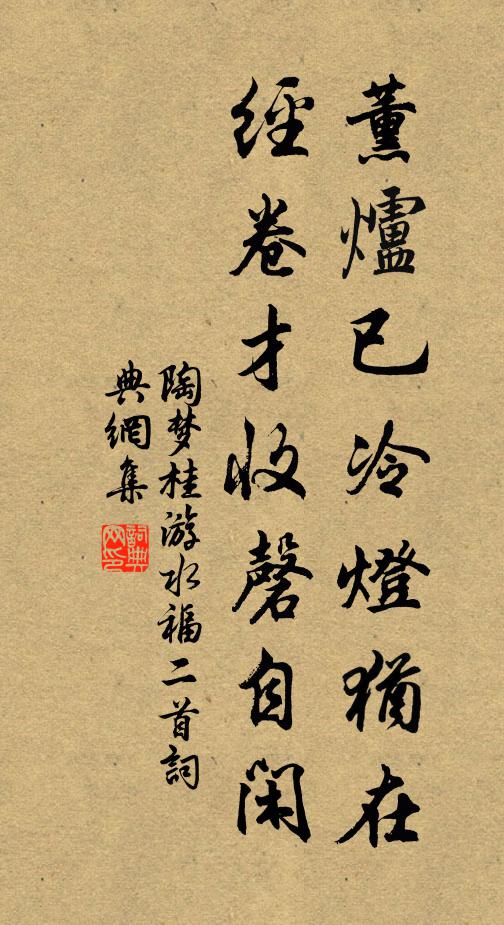 薰爐已冷燈猶在
經卷才收磬自閑
陶梦桂游水福二首詞
典網集
詞典网印